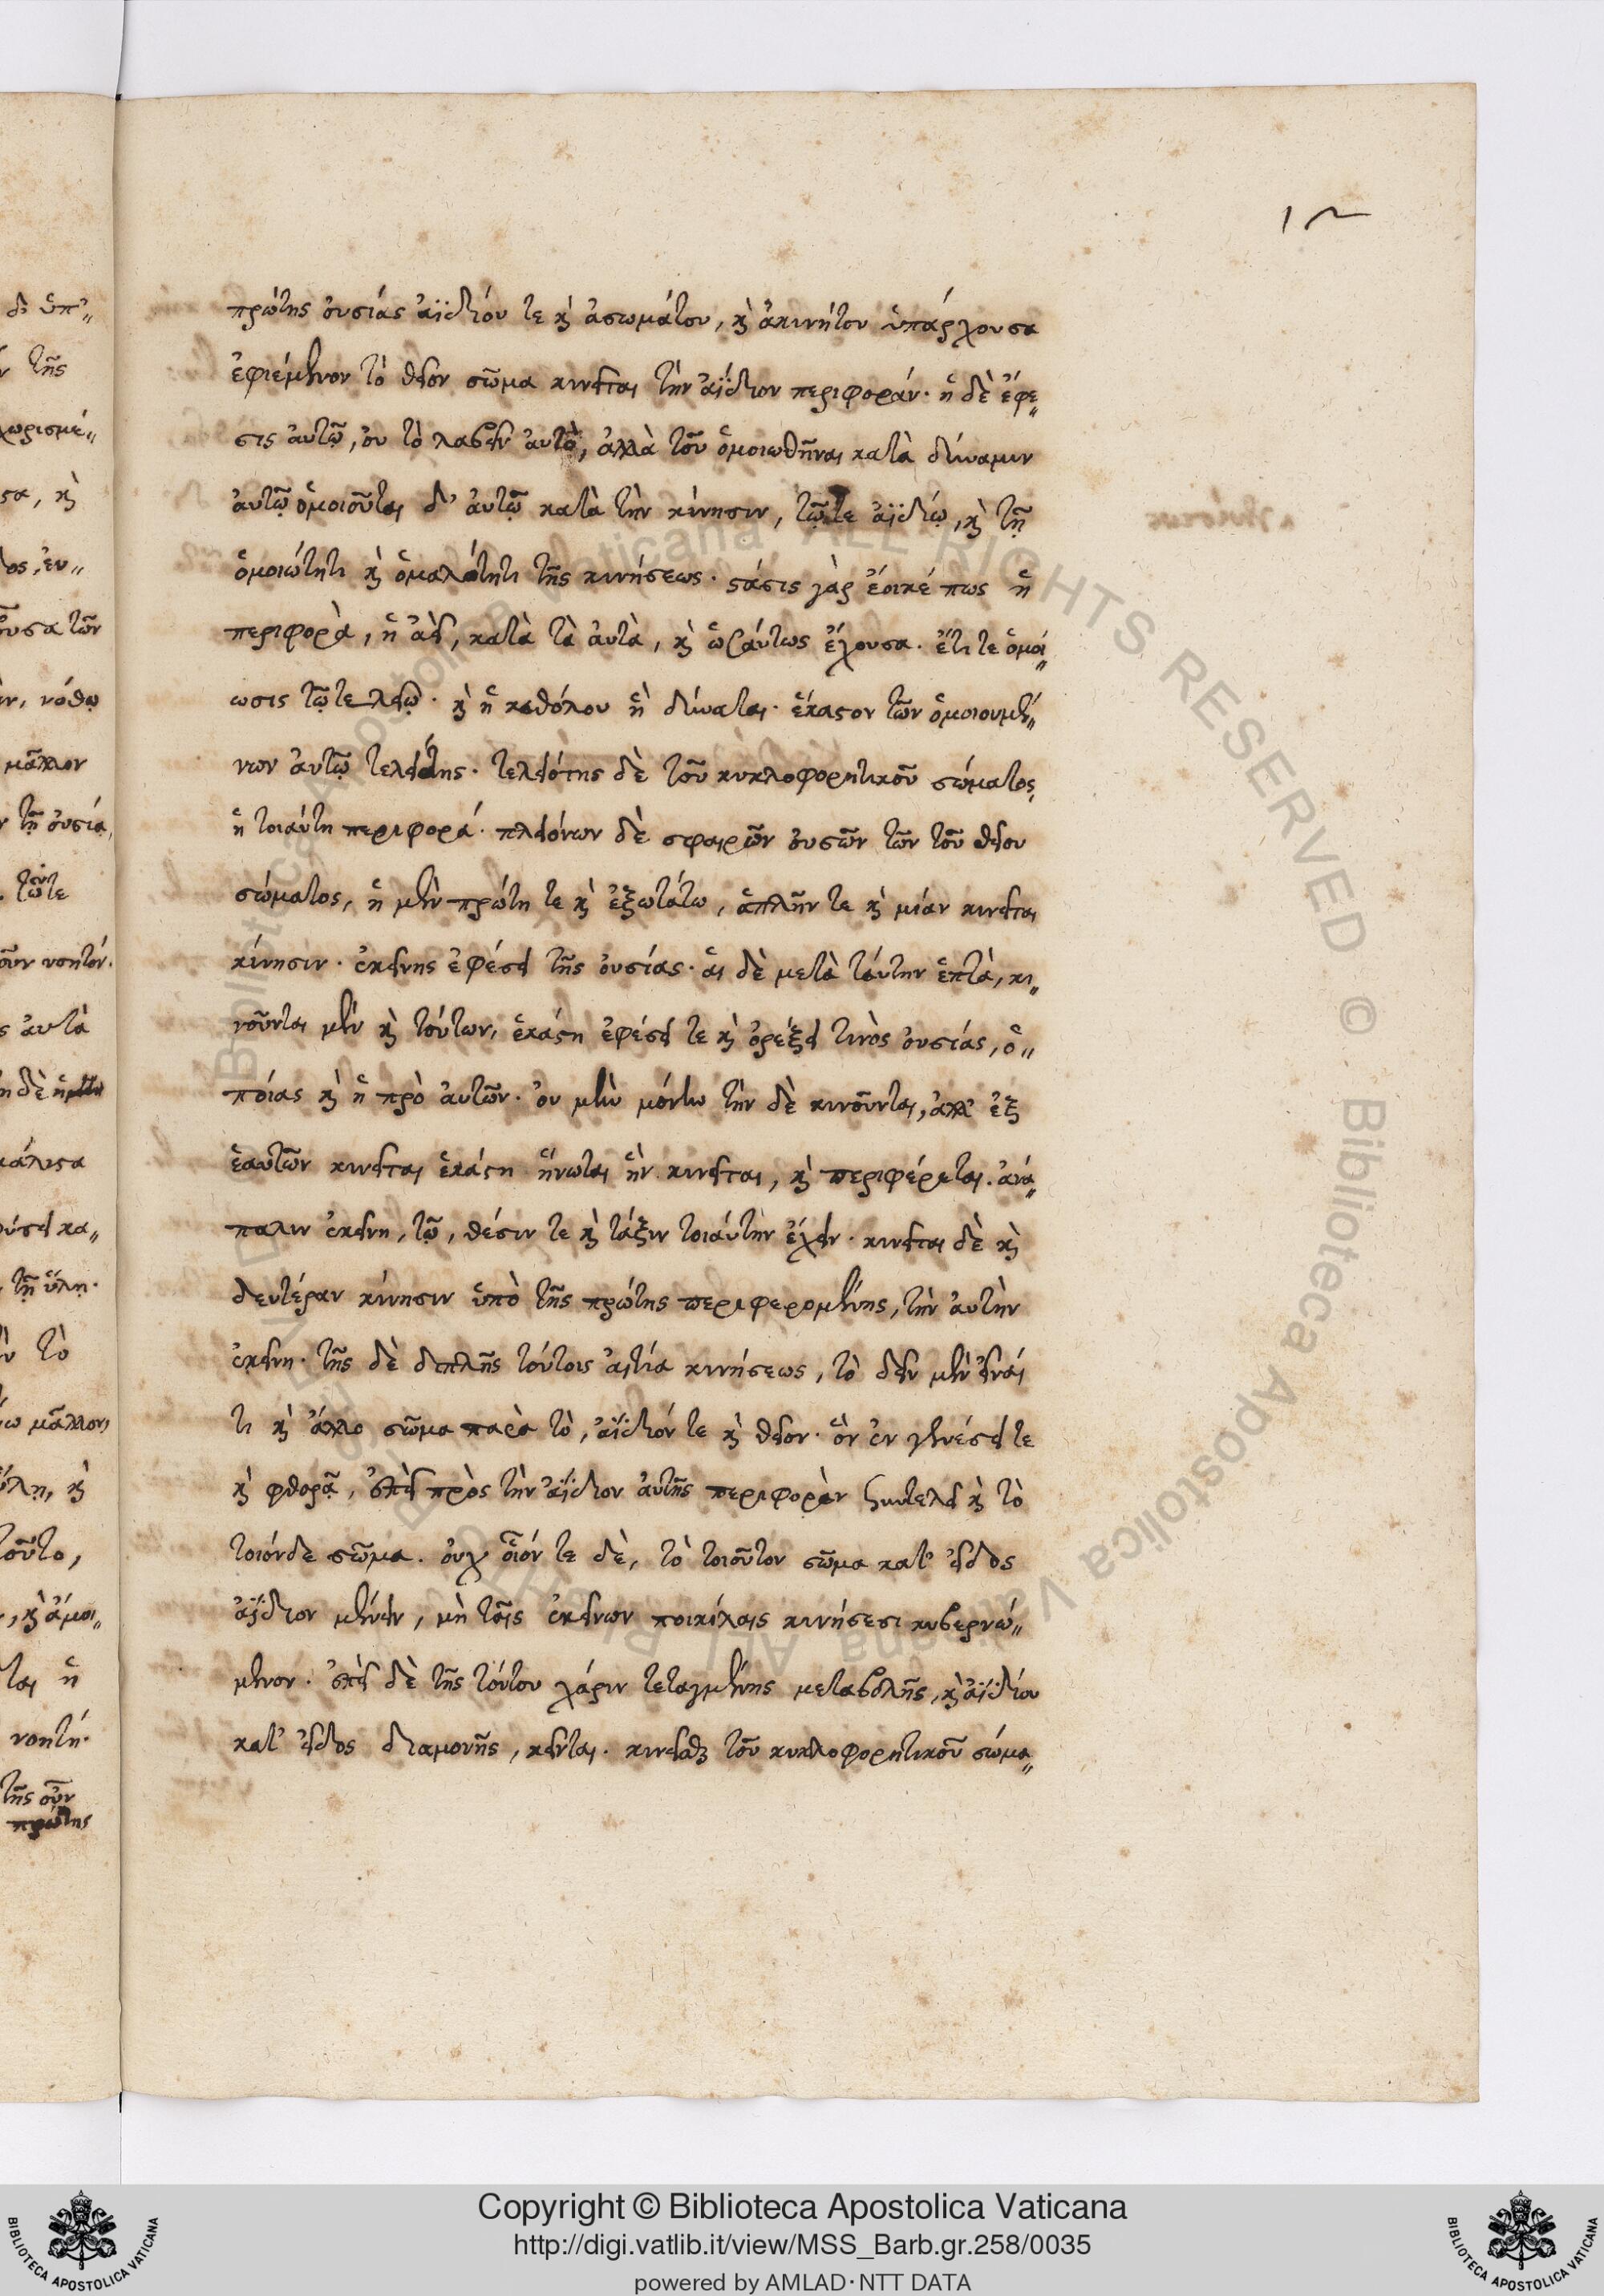 12
πρώτης ὀυσίας ἀϊδιόυ τε κὶ ἀσωμάτου, κὶ ἀκινήτου ὑπάρχουσα
ἐφιέμενον τὸ θεῖον σῶμα κινεῖται τὴν ἀΐδιον περιφοράν· ἡ δὲ ἔφε„
σις ἀυτῶ, ὀυ τὸ λαβεῖν ἀυτὸ, ἀλλὰ τοῦ ὁμοιωθῆναι κατὰ δύναμιν
ἀυτῷ ὁμοιοῦται δ' ἀυτῷ κατὰ τὴν κίνησιν, τῷ τε ἀϊδίῳ, κὶ τῇ
ὁμοιώτητι κὶ ὁμαλότητι τῆς κινήσεως· ϛάσις γὰρ ἔοικέ πως ἡ
περιφορὰ, ἡ ἀεὶ, κατὰ τὰ ἀυτὰ, κὶ ὡσάυτως ἔχουσα. ἔτι τε ὁμοί„
ωσις τῷ τελείῳ· κὶ ἡ καθόλου ᾗ δύναται· ἕκαϛον τῶν ὁμοιουμέ„
νων ἀυτῷ τελειότης· τελειότης δὲ τοῦ κυκλοφορητικοῦ σώματος,
ἡ τοιάυτη περιφορά· πλειόνων δὲ σφαιρῶν ὀυσῶν τῶν τοῦ θείου
σώματος, ἡ μὲν πρώτη τε κὶ ἐξωτάτω, ἁπλῆν τε κὶ μίαν κινεῖται
κίνησιν· ἐκείνης ἐφέσει τῆς ὀυσίας· ἁι δὲ μετὰ τάυτην ἑπτὰ, κι„
νοῦνται μὲν κὶ τόυτων, ἑκάϛη ἐφέσει τε κὶ ὀρέξει τινὸς ὀυσίας, ὁ„
ποίας κὶ ἡ πρὸ ἀυτῶν· ὀυ μὴν μόνην τὴν δὲ κινοῦνται, ἀλλ' ἐξ
ἑαυτῶν κινεῖται ἑκάϛη ἥνωται ἣν κινεῖται, κὶ περιφέρεται. ἀνά„
παλιν ἐκείνῃ, τῷ, θέσιν τε κὶ τάξιν τοιάυτην ἔχειν· κινεῖται δὲ κὶ
δευτέραν κίνησιν ὑπὸ τῆς πρώτης περιφερομένης, τὴν ἀυτὴν
ἐκείνῃ· τῆς δὲ διπλῆς τόυτοις ἀιτία κινήσεως, τὸ δεῖν μὲν εἶναί
τι κὶ ἄλλο σῶμα παρὰ τὸ, ἀΐδιόν τε κὶ θεῖον· ὃν ἐν γενέσει τε
κὶ φθορᾷ, ἐπεὶ πρὸς τὴν ἀΐδιον ἀυτῆς περιφορὰν συντελεῖ κὶ τὸ
τοιόνδε σῶμα. ὀυχ οἷόν τε δὲ, τὸ τοιοῦτον σῶμα κατ' εἶδος
ἀΐδιον μένειν, μὴ ταῖς ἐκείνων ποικίλαις κινήσεσι κυβερνώ„
μενον· ἐπεὶ δὲ τῆς τόυτου χάριν τεταγμένης μεταβολῆς, κὶ ἀϊδίου
κατ' εἶδος διαμονῆς, κεῖνται· κινεῖσθαι τοῦ κυκλοφορητικοῦ σώμα„
Copyright © Biblioteca Apostolica Vaticana
http://digi.vatlib.it/view/MSS_Barb.gr.258/0035
powered by AMLAD·NTT DATA